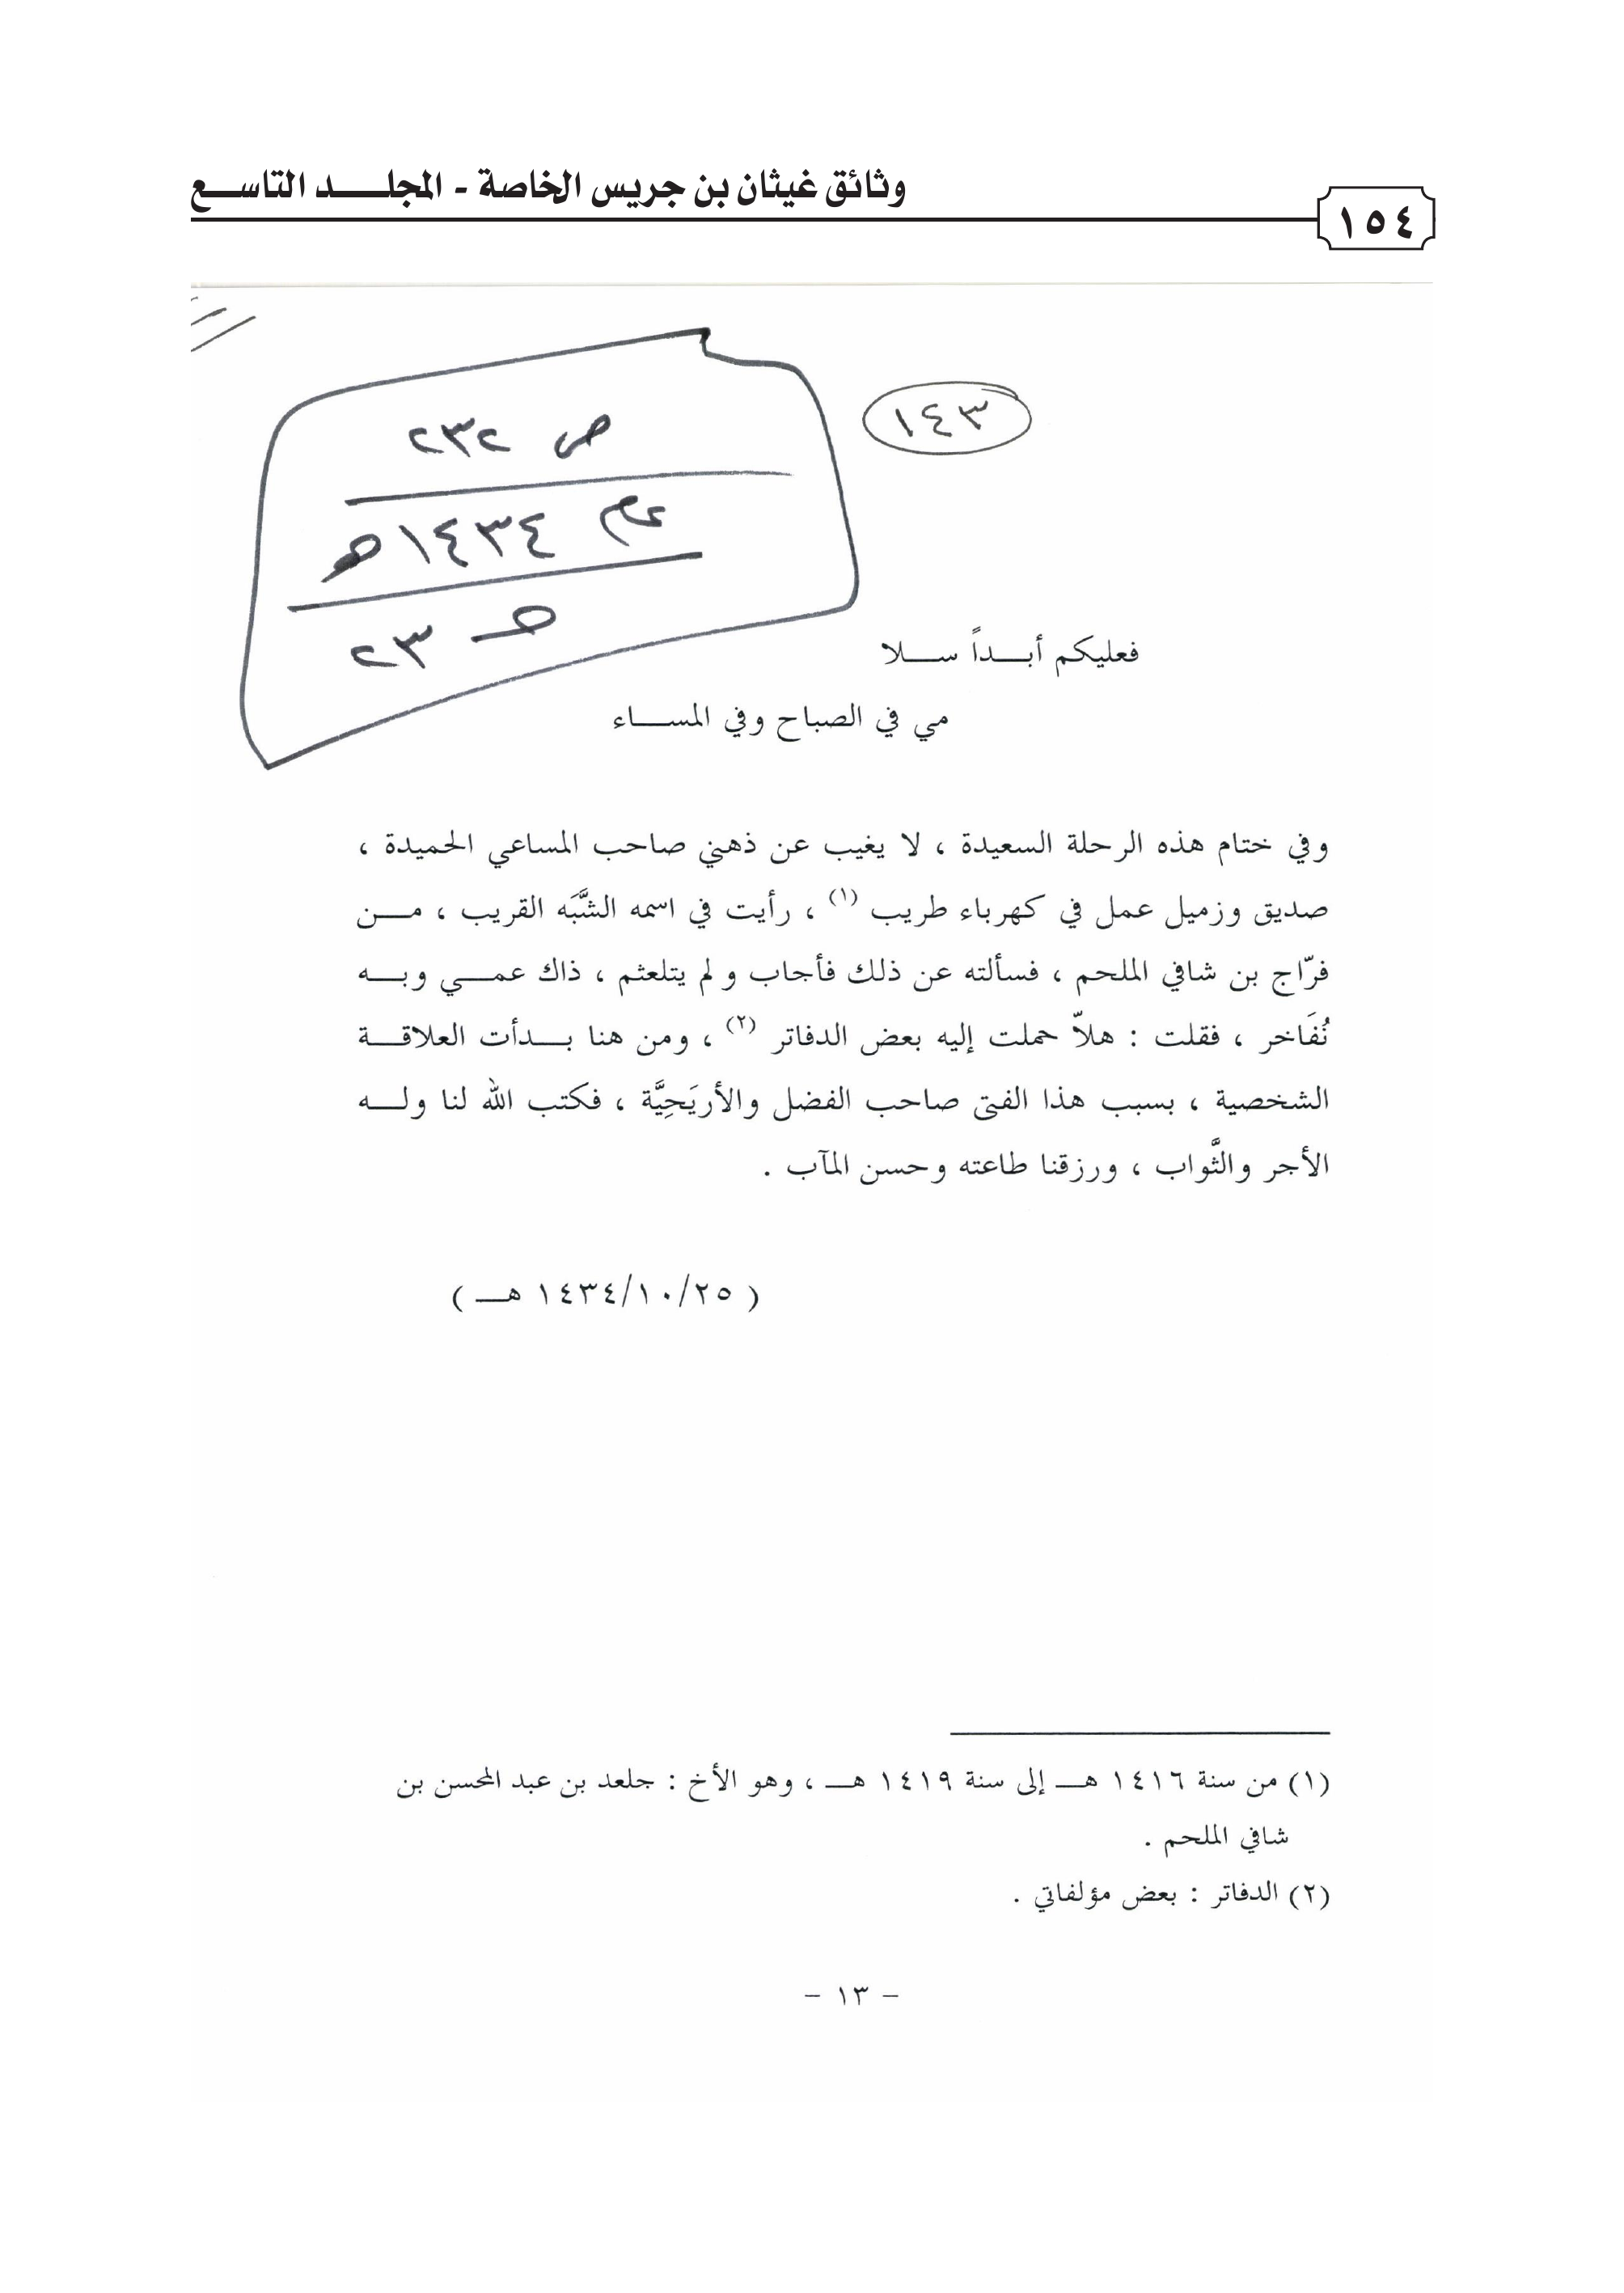 وثائق غيثان بن جريس الخاصة - المجلـــــد التاســـع
١٥٤
١٤٣
ص ٢٣٢
عام ١٤٣٤هـ
٢٣
فعليكم أبـــداً ســـلا
مي في الصباح وفي المســـاء
وفي ختام هذه الرحلة السعيدة ، لا يغيب عن ذهني صاحب المساعي الحميدة ،
صديق وزميل عمل في كهرباء طريب (١) ، رأيت في اسمه الشَّبَه القريب ، مـــن
فرّاج بن شافي الملحم ، فسألته عن ذلك فأجاب و لم يتلعثم ، ذاك عمـــي وبـــه
نُفَاخر ، فقلت : هلاّ حملت إليه بعض الدفاتر (٢) ، ومن هنا بـــدأت العلاقـــة
الشخصية ، بسبب هذا الفتى صاحب الفضل والأريَحِيَّة ، فكتب الله لنا ولـــه
الأجر والثَّواب ، ورزقنا طاعته وحسن المآب .
( ١٤٣٤/١٠/٢٥ هـــ )
(١) من سنة ١٤١٦ هـــ إلى سنة ١٤١٩ هـــ ، وهو الأخ : جلعد بن عبد المحسن بن
شافي الملحم .
(٢) الدفاتر : بعض مؤلفاتي .
– ١٣ –